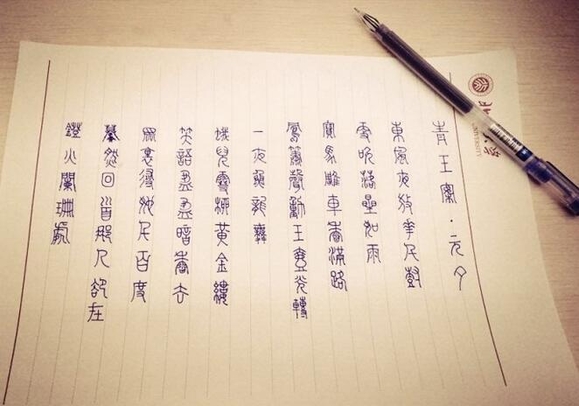 青玉案·元夕
東風夜放華千樹
更吹落星如雨
寶馬雕車香滿路
鳳簫聲動玉壺光轉
一夜魚龍舞
蛾兒雪柳黃金縷
笑語盈盈暗香去
眾裏尋他千百度
驀然回首那人卻在
鐙火闌珊處